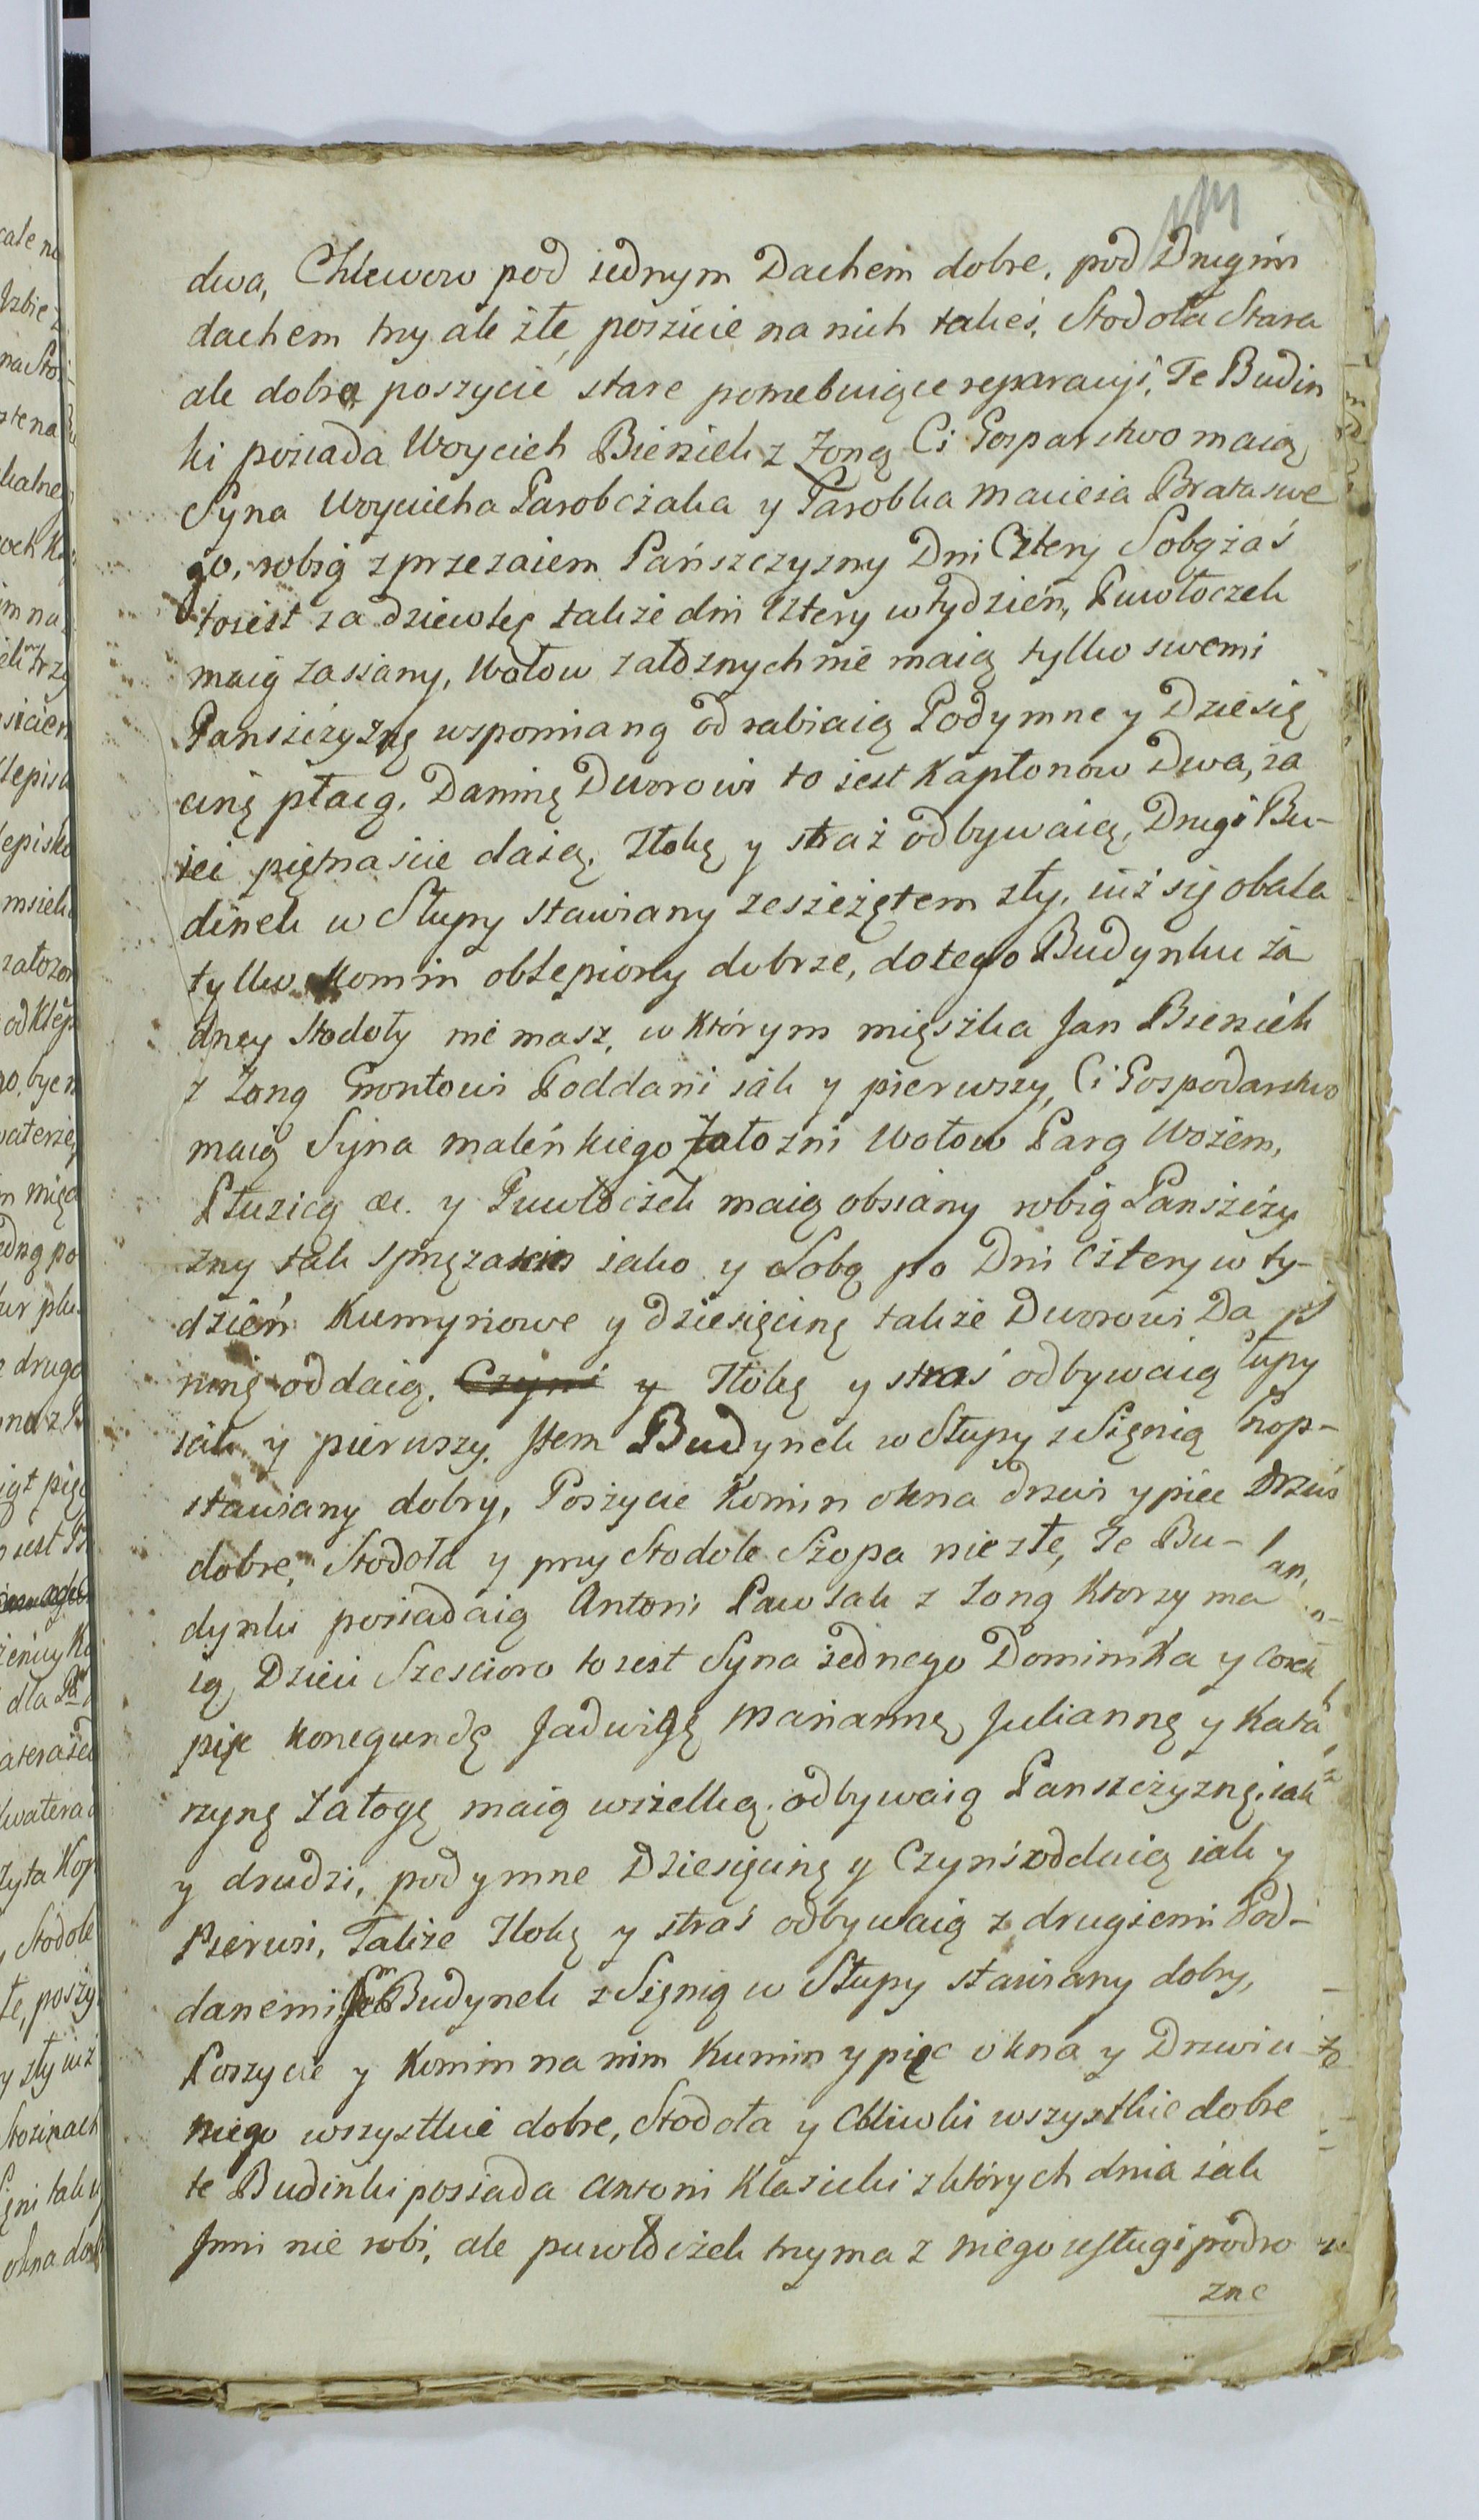 dwa, Chlewow pod iednym Dachem dobre, pod Drugim
dachem trzy ale złe, poszicie na nich takeś, Stodoła Stara
ale dobra poszycie stare potrzebuiące reparacyi, Te Budin
ki posiada Woyciech Bieniek z Zoną Ci Gosparstwo maią
Syna Woyciecha Parobczaka y Parobka Macieia Brata swe
go, robią zprzezaiem Pańszczyzny Dni Cztery Sobą zaś
toiest za dziewkę takze dni Cztery w tydzień, Puwłoczek
maią zasiany, Wołow załoznych nie maią tylko swemi
Pansczyznę wspomianą odrabiaią Podymne y Dziesię
cinę płacą. Daninę Dworowi to iest Kapłonow Dwa, Ja
iei piętnascie daią. Stokę y straż odbywaią, Drugi Bu-
dinek w Słupy stawiany zeszczętem zły, iuż się obala
tylko Komin oblepiony dobrze, do tego Budynku ża
dney Stodoły nie masz, w którym mięszka Jan Bieniek
z Zoną Grontowi Poddani iak y pierwszy, Ci Gospodarstwo
maią Syna maleńkiego Załozni Wołow Parą Wozem,
Płuzicą &c. y Puwłoczek maią obsiany robią Panszczy
zny tak sprzęzaiem iako y Sobą po Dni Cztery w ty-
dzień Kumynowe y dziesięcinę także Dworowi Da
ninę oddaią. Czynś y Stókę y straś odbywaią
iak y pierwszy. Item Budynek w Słupy z Sięnią
stawiany dobry, Poszycie Komin okna drzwi y piec
dobre, Stodoła y przy Stodole Szopa nie złe, Te Bu-
dynki posiadaią Antoni Pawlak z Zoną Ktorzy ma
ią Dzieci Szescioro to iest Syna iednego Dominika y Corek
pięć Konegundę Jadwigę Mariannę Juliannę y Kata
rzynę Załogę maią wszelką. odbywaią Panszczyznę, iak
y drudzi, podymne Dziesięcinę y Czynś oddaią iak y
Pierwsi, Takze Stokę y straś odbywaią z drugiemi Pod-
danemi, Jtem Budynek z Sięnią w Słupy stawiany dobry,
Poszycie y Komin na nim Kumin y pięc okna y Drzwi u
niego wszystkie dobre, Stodoła y Chliwki wszystkie dobre
te Budinki posiada Antoni Klasicki z których dnia iak
Jnni nie robi, ale puwłoczek trzyma z niego usługi podro
zne